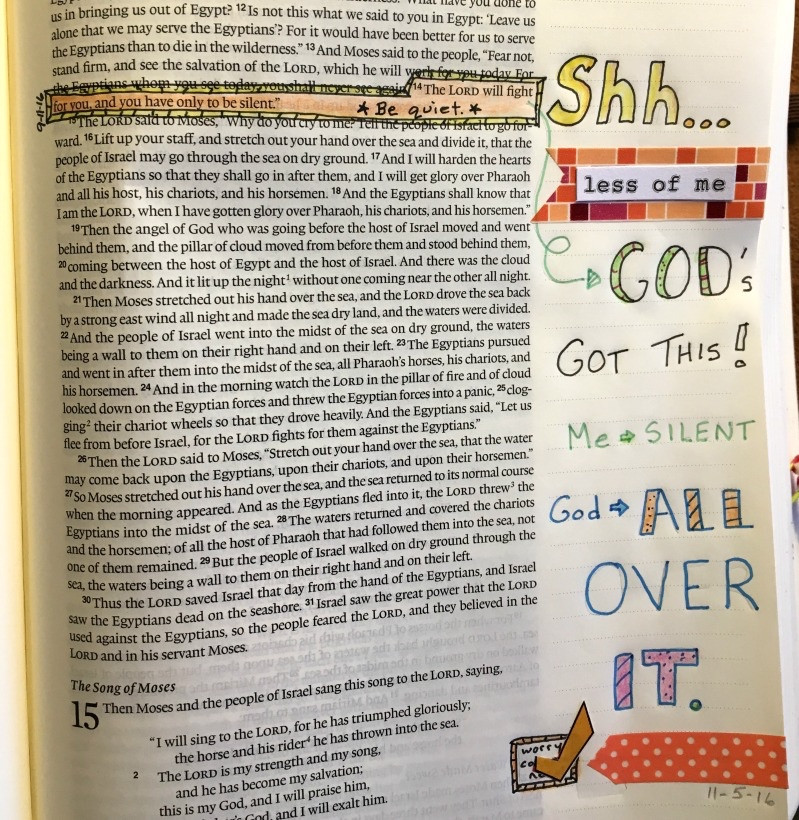 us in bringing us out of Egypt? 12 Is not this what we said to you in Egypt: ‘Leave us
alone that we may serve the Egyptians’? For it would have been better for us to serve
the Egyptians than to die in the wilderness.” 13 And Moses said to the people, “Fear not,
stand firm, and see the salvation of the LORD, which he will work for you today. For
the Egyptians whom you see today, you shall never see again. 14 The LORD will fight
for you, and you have only to be silent.”
* Be quiet. *
15 The LORD said to Moses, “Why do you cry to me? Tell the people of Israel to go for-
ward. 16 Lift up your staff, and stretch out your hand over the sea and divide it, that the
people of Israel may go through the sea on dry ground. 17 And I will harden the hearts
of the Egyptians so that they shall go in after them, and I will get glory over Pharaoh
and all his host, his chariots, and his horsemen. 18 And the Egyptians shall know that
I am the LORD, when I have gotten glory over Pharaoh, his chariots, and his horsemen.”
19 Then the angel of God who was going before the host of Israel moved and went
behind them, and the pillar of cloud moved from before them and stood behind them,
20 coming between the host of Egypt and the host of Israel. And there was the cloud
and the darkness. And it lit up the night1 without one coming near the other all night.
21 Then Moses stretched out his hand over the sea, and the LORD drove the sea back
by a strong east wind all night and made the sea dry land, and the waters were divided.
22 And the people of Israel went into the midst of the sea on dry ground, the waters
being a wall to them on their right hand and on their left. 23 The Egyptians pursued
and went in after them into the midst of the sea, all Pharaoh’s horses, his chariots, and
his horsemen. 24 And in the morning watch the LORD in the pillar of fire and of cloud
looked down on the Egyptian forces and threw the Egyptian forces into a panic, 25 clog-
ging2 their chariot wheels so that they drove heavily. And the Egyptians said, “Let us
flee from before Israel, for the LORD fights for them against the Egyptians.”
26 Then the LORD said to Moses, “Stretch out your hand over the sea, that the water
may come back upon the Egyptians, upon their chariots, and upon their horsemen.”
27 So Moses stretched out his hand over the sea, and the sea returned to its normal course
when the morning appeared. And as the Egyptians fled into it, the LORD threw3 the
Egyptians into the midst of the sea. 28 The waters returned and covered the chariots
and the horsemen; of all the host of Pharaoh that had followed them into the sea, not
one of them remained. 29 But the people of Israel walked on dry ground through the
sea, the waters being a wall to them on their right hand and on their left.
30 Thus the LORD saved Israel that day from the hand of the Egyptians, and Israel
saw the Egyptians dead on the seashore. 31 Israel saw the great power that the LORD
used against the Egyptians, so the people feared the LORD, and they believed in the
LORD and in his servant Moses.
The Song of Moses
15 Then Moses and the people of Israel sang this song to the LORD, saying,
“I will sing to the LORD, for he has triumphed gloriously;
the horse and his rider4 he has thrown into the sea.
2 The LORD is my strength and my song,
and he has become my salvation;
this is my God, and I will praise him,
God, and I will exalt him.
Shh...
less of me
GOD's
GOT THIS!
Me → SILENT
God → ALL
OVER
IT.
worry
11-5-16